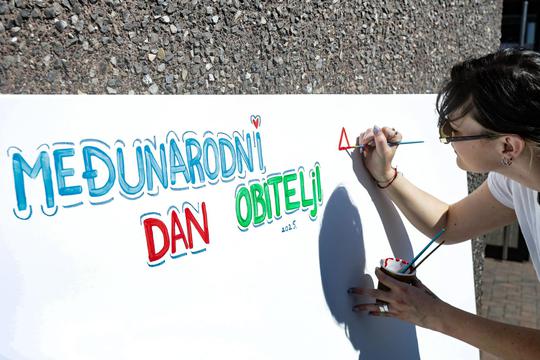 MEĐUNARODNI
DAN OBITELJI
2025.